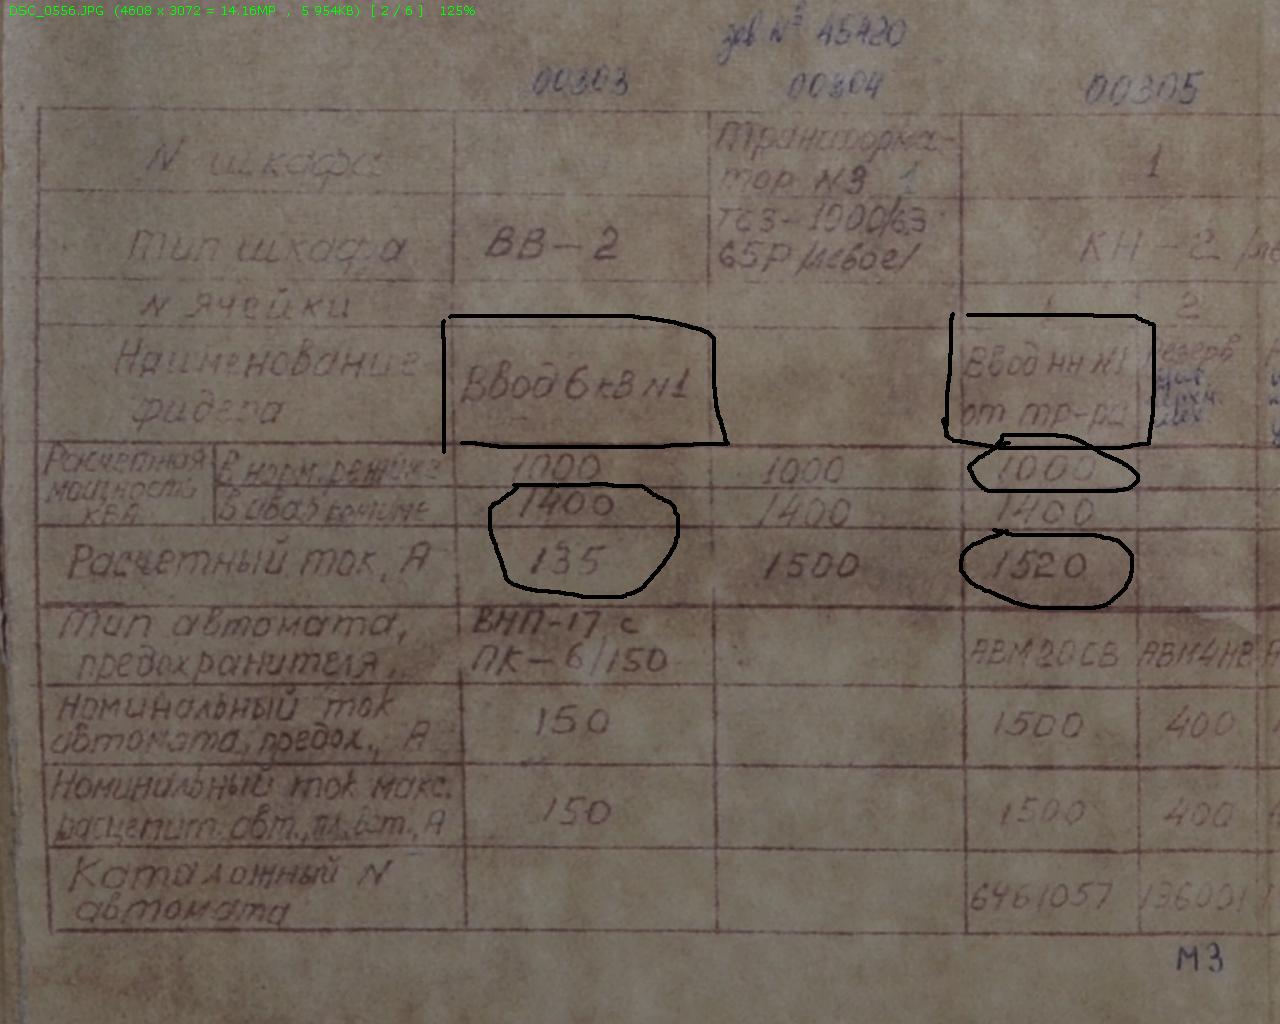 DSC_0556.JPG (4608 x 3072 = 14.16MP , 5 954KB) [ 2 / 6 ] 125%
зав № 45420
00303 00304 00305
N шкафа Трансформа- 1
тор N3 1
Тип шкафа ВВ-2 ТСЗ-1000/6,3 КН-2
65Р /левое/
N ячейки 1 2
Наименование Ввод 6 кВ N1 Ввод НН N1 Резерв
фидера от тр-ра
Расчетная В норм. режиме 1000 1000 1000
мощность
КВА В авар. режиме 1400 1400 1400
Расчетный ток, А 135 1500 1520
Тип автомата, ВНП-17 с
предохранителя, ПК-6/150 АВМ20СВ АВМ4НВ
Номинальный ток
автомата, предох., А 150 1500 400
Номинальный ток макс.
расцепит. авт., пл. вст., А 150 1500 400
Каталожный N
автомата 6461057
М3